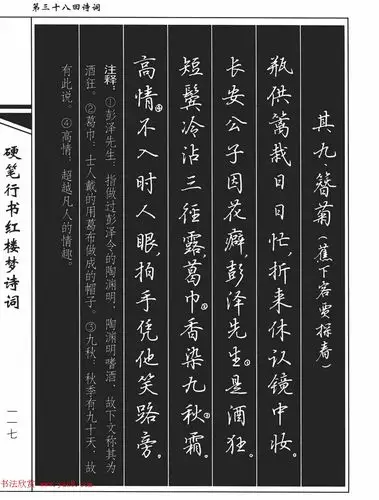 第三十八回诗词
其九·簪菊（蕉下客贾探春）
瓶供篱栽日日忙，折来休认镜中妆。
长安公子因花癖，彭泽先生①是酒狂。
短鬓冷沾三径露，葛巾②香染九秋③霜。
高情④不入时人眼，拍手凭他笑路旁。
注释：①彭泽先生：指做过彭泽令的陶渊明，陶渊明嗜酒，故下文称其为
酒狂。②葛巾：士人戴的用葛布做成的帽子。③九秋：秋季有九十天，故
有此说。④高情：超越凡人的情趣。
硬笔行书红楼梦诗词
一一七
书法欣赏